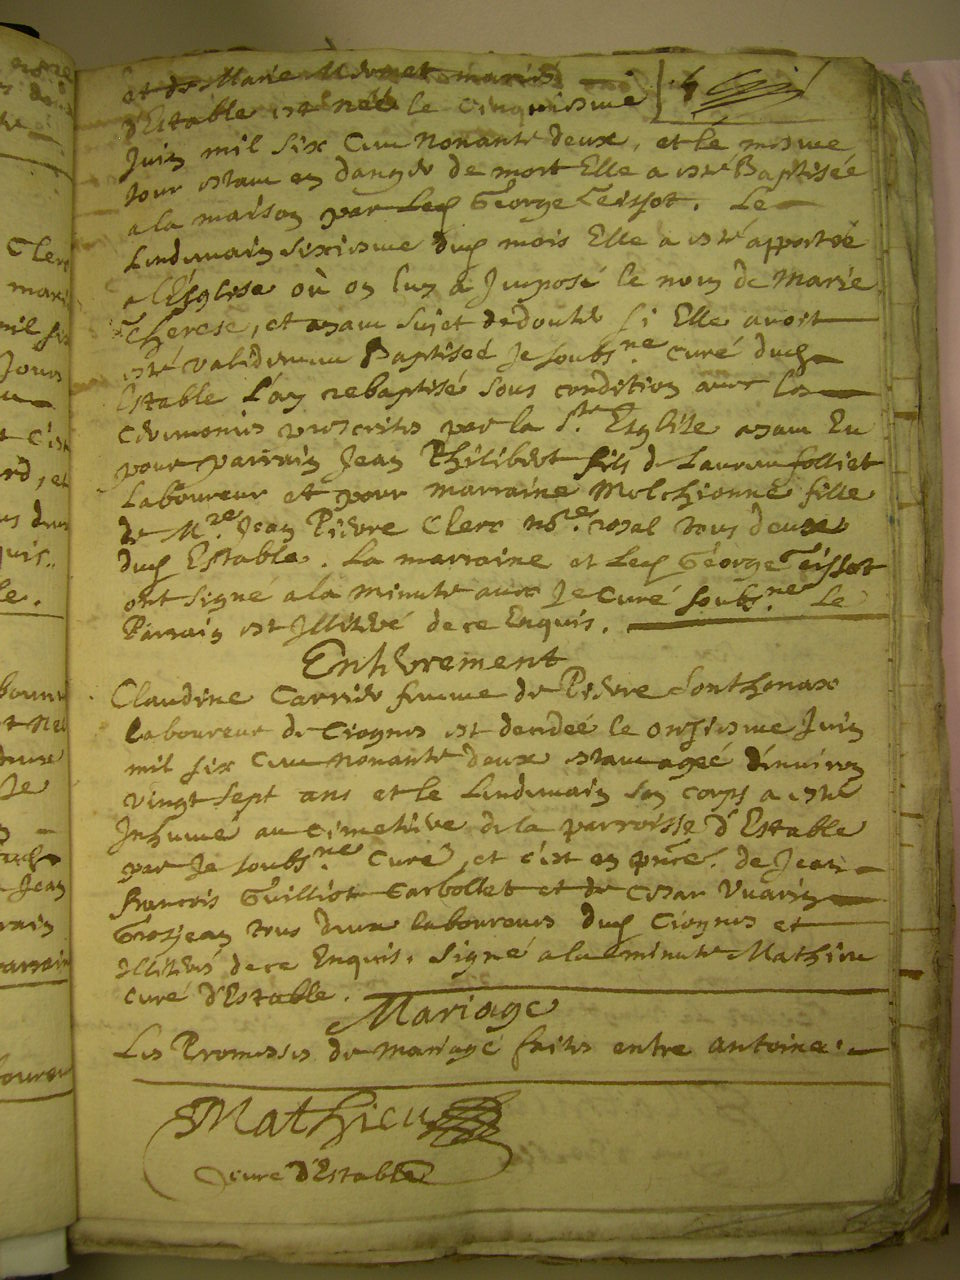 et de Marie mariés
d'Estable est née le cinquiesme 6
Juin mil six cens nonante deux, et le mesme
jour estant en danger de mort Elle a esté Baptisée
a la maison par led George Teissot. Le
Lendemain sixiesme dud mois Elle a esté apportée
a l'Esglise où on luy a Imposé le nom de Marie
Therese, et ayant sujet de doubte si Elle avoit
esté validement Baptisée Je soubs.né curé dud
Estable l'ay rebaptisé sous condition avec les
ceremonies prescrites par la S.te Esglise ayant Eu
pour parrain Jean Philibert fils de Laurent folliet
Laboureur et pour marraine Melchionne fille
de M.re Jean Pierre Clerc no.re royal tous deux
dud Estable. La marraine et led George Teissot
ont signé a la minute avec Je Curé soubs.né Le
Parrain est Illiteré de ce Enquis.
Enterrement
Claudine Carrier femme de Pierre Sonthonax
laboureur de Ciognes est decedée le onziesme Juin
mil six cens nonante deux estant agée d'environ
vingt sept ans et le Lendemain son corps a esté
Inhumé au cimetiere de la parroisse d'Estable
par Je soubs.né Curé, et c'est en pnce. de Jean
francois Guilliot Carbollet et de Cesar Vuarin
Grosjean tous deux laboureurs dud Ciognes et
Illiterés de ce Enquis. Signé a la minute Mathieu
curé d'Estable.
Mariage
Les Promesses de mariage faites entre Antoine
Mathieu
curé d'Estable